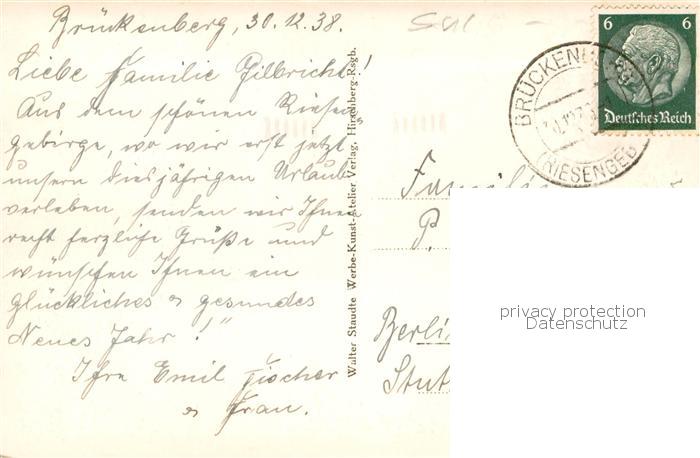 Brückenberg, 30.12.38.
Liebe Familie Gilbricht!
Aus dem schönen Riesen
gebirge, wo wir erst jetzt
unsern diesjährigen Urlaub
verleben, senden wir Ihnen
recht herzliche Grüße und
wünschen Ihnen ein
glückliches & gesundes
Neues Jahr!"
Ihre Emil Fischer
& Frau.
Walter Staudte Werbe-Kunst-Atelier Verlag, Hirschberg-Rsgb.
6 6
Deutsches Reich
BRÜCKENBERG
(RIESENGEB
P.
privacy protection
Datenschutz